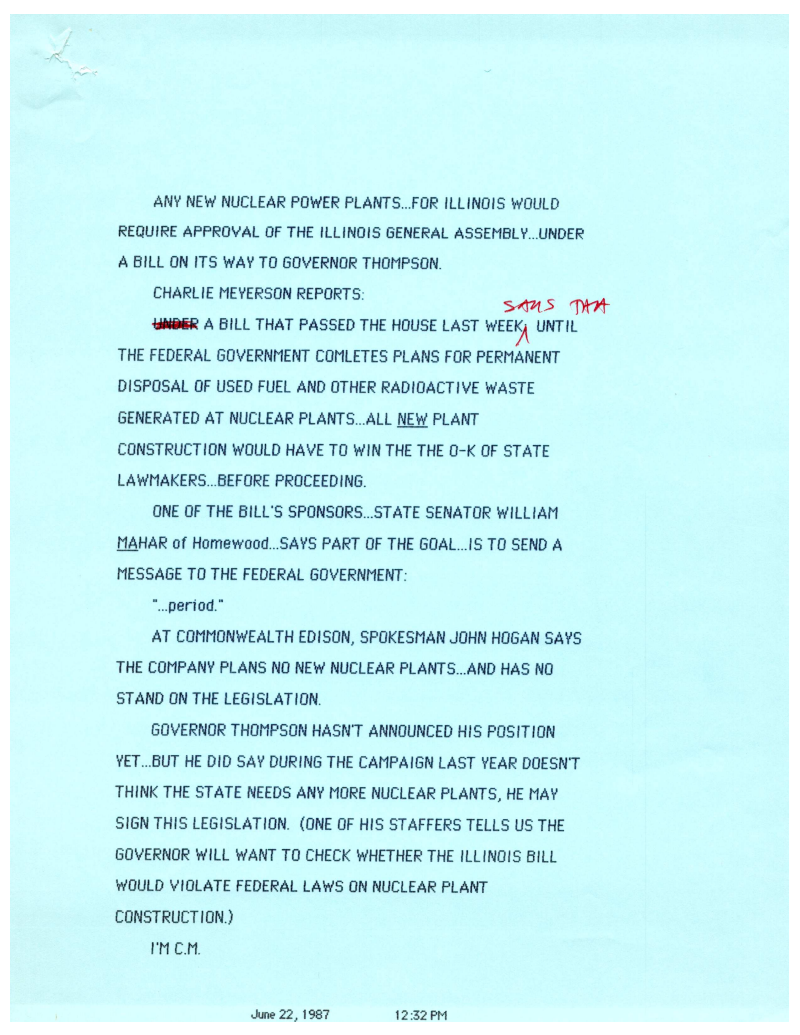 ANY NEW NUCLEAR POWER PLANTS...FOR ILLINOIS WOULD
REQUIRE APPROVAL OF THE ILLINOIS GENERAL ASSEMBLY...UNDER
A BILL ON ITS WAY TO GOVERNOR THOMPSON.
CHARLIE MEYERSON REPORTS:
SAYS THAT
UNDER A BILL THAT PASSED THE HOUSE LAST WEEK, UNTIL
THE FEDERAL GOVERNMENT COMLETES PLANS FOR PERMANENT
DISPOSAL OF USED FUEL AND OTHER RADIOACTIVE WASTE
GENERATED AT NUCLEAR PLANTS...ALL NEW PLANT
CONSTRUCTION WOULD HAVE TO WIN THE THE O-K OF STATE
LAWMAKERS...BEFORE PROCEEDING.
ONE OF THE BILL'S SPONSORS...STATE SENATOR WILLIAM
MAHAR of Homewood...SAYS PART OF THE GOAL...IS TO SEND A
MESSAGE TO THE FEDERAL GOVERNMENT:
"...period."
AT COMMONWEALTH EDISON, SPOKESMAN JOHN HOGAN SAYS
THE COMPANY PLANS NO NEW NUCLEAR PLANTS...AND HAS NO
STAND ON THE LEGISLATION.
GOVERNOR THOMPSON HASN'T ANNOUNCED HIS POSITION
YET...BUT HE DID SAY DURING THE CAMPAIGN LAST YEAR DOESN'T
THINK THE STATE NEEDS ANY MORE NUCLEAR PLANTS, HE MAY
SIGN THIS LEGISLATION. (ONE OF HIS STAFFERS TELLS US THE
GOVERNOR WILL WANT TO CHECK WHETHER THE ILLINOIS BILL
WOULD VIOLATE FEDERAL LAWS ON NUCLEAR PLANT
CONSTRUCTION.)
I'M C.M.
June 22, 1987 12:32 PM